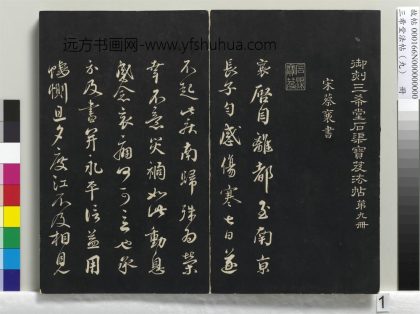 远方书画网-www.yfshuhua.com
故帖 000166N000000000
三希堂法帖（九） 册
御刻三希堂石渠寶笈法帖 第九冊
宋蔡襄書
襄啓自離都至南京
長子勻感傷寒七日遂
不起此疾南歸殊為榮
幸不意災禍如此動息
感念哀痛何可言也承
示及書并永平信益用
悽惻旦夕度江不及相見
1